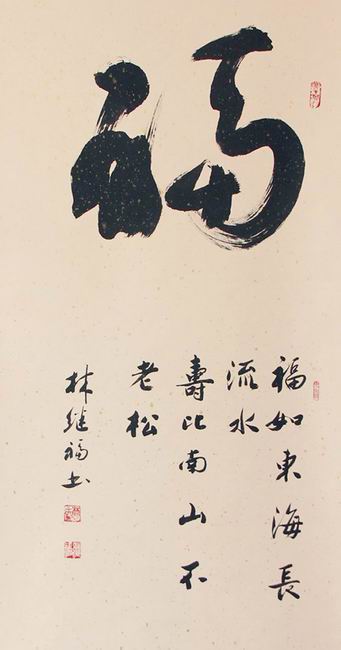 福
福如東海長
流水
壽比南山不
老松
林繼福书